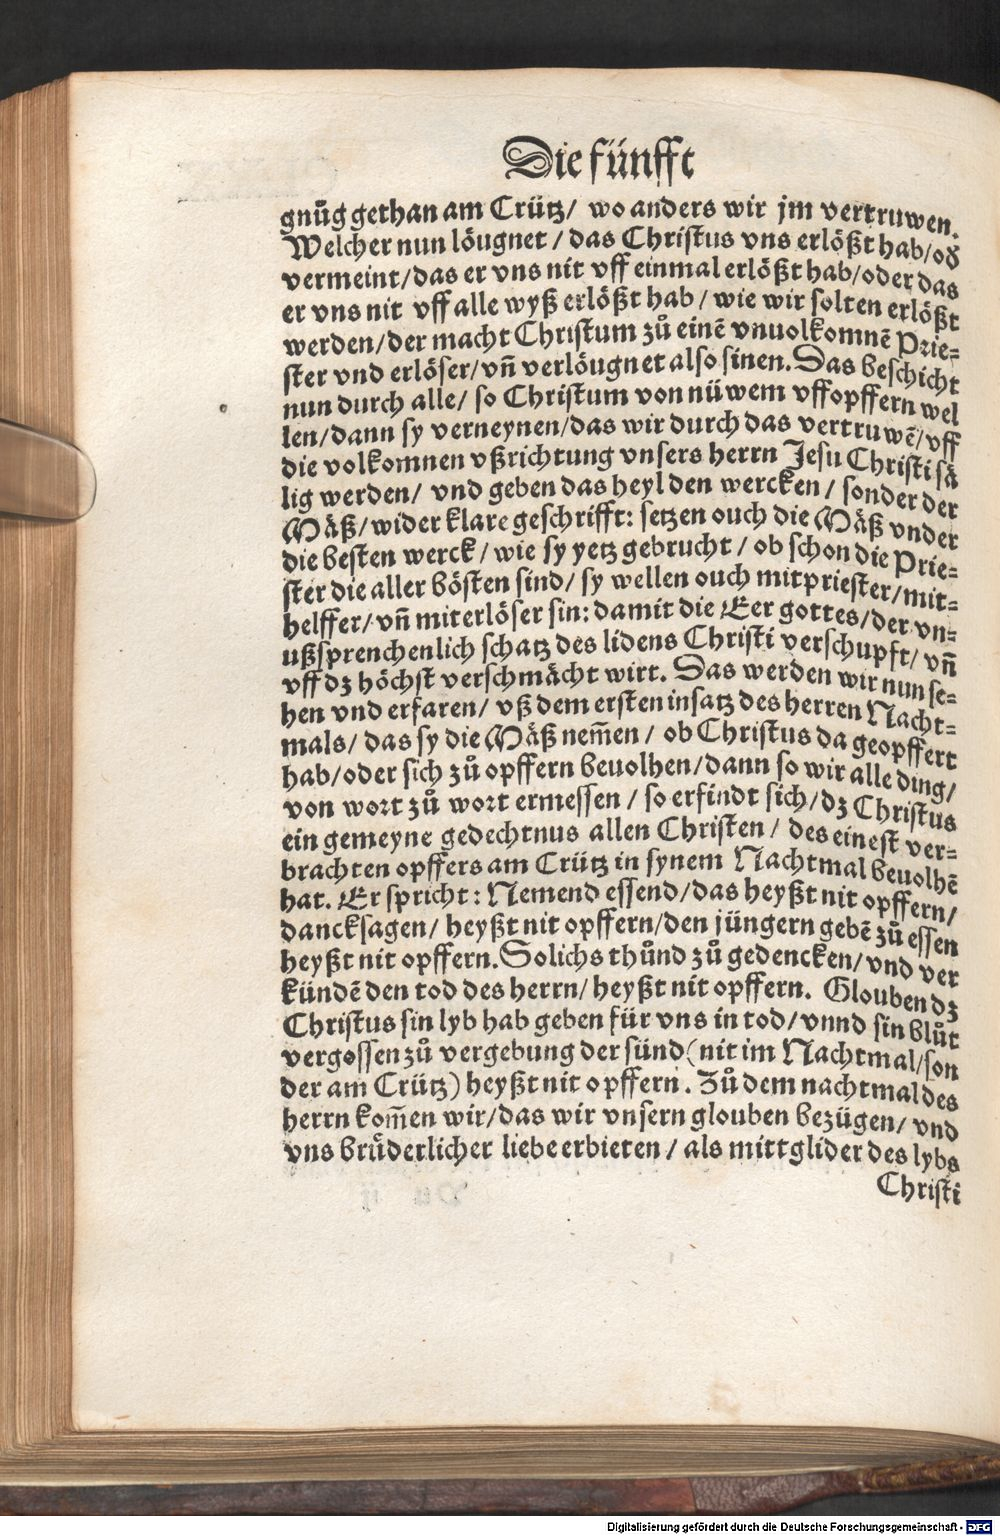 Die fünfft
gnůg gethan am Crütz/ wo anders wir jm vertruwen.
Welcher nun löugnet/ das Christus vns erlößt hab/od̕
vermeint/das er vns nit vff einmal erlößt hab/oder das
er vns nit vff alle wyß erlößt hab/ wie wir solten erlößt
werden/der macht Christum zů einē vnuolkomnē Prie⸗
ster vnd erlöser/vn̄ verlöugnet also sinen. Das beschicht
nun durch alle/ so Christum von nüwem vffopffern wel
len/dann sy verneynen/das wir durch das vertruwē/vff
die volkomnen vßrichtung vnsers herrn Jesu Christi sä
lig werden/ vnd geben das heyl den wercken/ sonder der
Mäß/wider klare geschrifft: setzen ouch die Mäß vnder
die besten werck/ wie sy yetz gebrucht/ ob schon die Prie⸗
ster die aller bösten sind/ sy wellen ouch mitpriester/mit⸗
helffer/vn̄ miterlöser sin: damit die Eer gottes/der vn⸗
ußsprenchenlich schatz des lidens Christi verschupft/ vn̄
vff dz höchst verschmächt wirt. Das werden wir nun se⸗
hen vnd erfaren/ vß dem ersten insatz des herren Nacht⸗
mals/ das sy die Mäß nem̄en/ ob Christus da geopffert
hab/oder sich zů opffern beuolhen/dann so wir alle ding/
von wort zů wort ermessen/ so erfindt sich/dz Christus
ein gemeyne gedechtnus allen Christen/ des einest ver⸗
brachten opffers am Crütz in synem Nachtmal beuolhē
hat. Er spricht: Nemend essend/das heyßt nit opffern/
dancksagen/ heyßt nit opffern/den jüngern gebē zů essen
heyßt nit opffern. Solichs thůnd zů gedencken/ vnd ver
kündē den tod des herrn/ heyßt nit opffern. Glouben dz
Christus sin lyb hab geben für vns in tod/ vnnd sin blůt
vergossen zů vergebung der sünd (nit im Nachtmal/son
der am Crütz) heyßt nit opffern. Zů dem nachtmal des
herrn kom̄en wir/das wir vnsern glouben bezügen/ vnd
vns brůderlicher liebe erbieten/ als mittglider des lybs
Christi
Digitalisierung gefördert durch die Deutsche Forschungsgemeinschaft - DFG